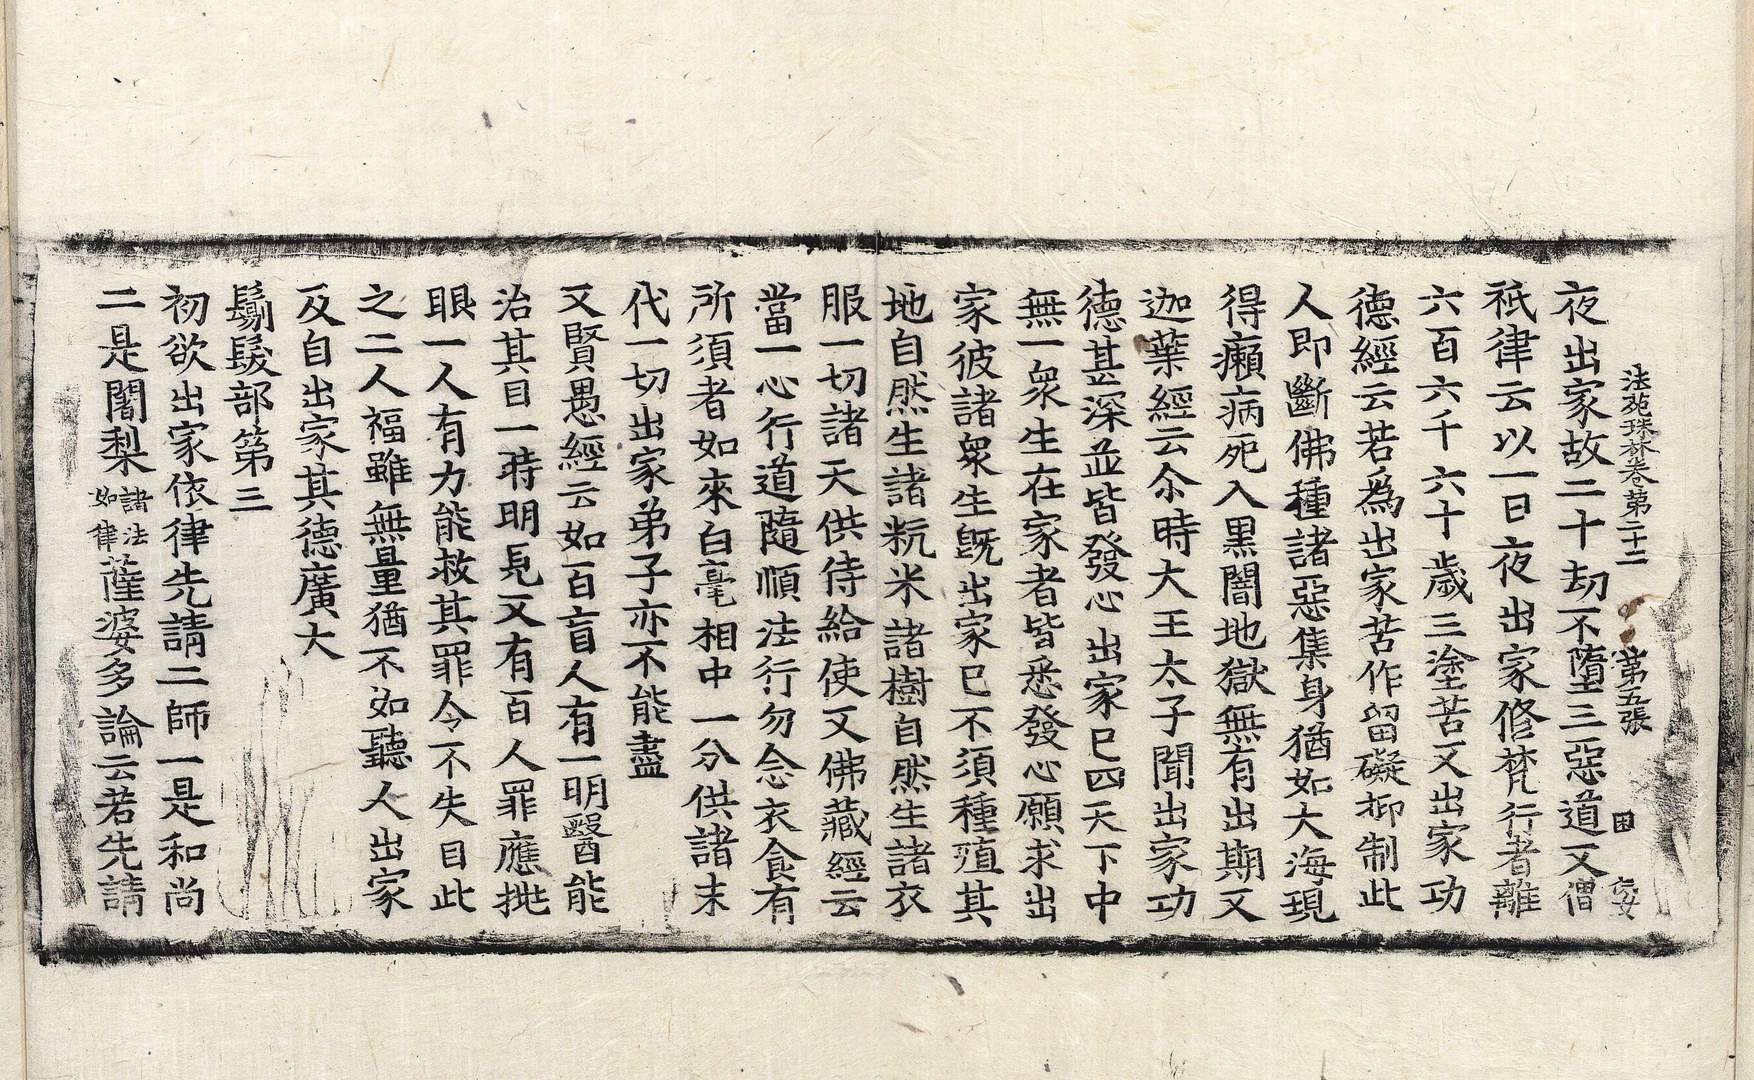 法苑珠林卷第二十二 第五張 田 安
夜出家故二十劫不墮三惡道又僧
祇律云以一日夜出家修梵行者離
六百六千六十歲三塗苦又出家功
德經云若為出家苦作留礙抑制此
人即斷佛種諸惡集身猶如大海現
得癩病死入黒闇地獄無有出期又
迦葉經云尒時大王太子聞出家功
德甚深並皆發心出家巳四天下中
無一衆生在家者皆悉發心願求出
家彼諸衆生旣出家巳不須種殖其
地自然生諸秔米諸樹自然生諸衣
服一切諸天供侍給使又佛藏經云
當一心行道隨順法行勿念衣食有
所須者如來白毫相中一分供諸末
代一切出家弟子亦不能盡
又賢愚經云如百盲人有一明醫能
治其目一時明見又有百人罪應挑
眼一人有力能救其罪令不失目此
之二人福雖無量猶不如聽人出家
及自出家其德廣大
鬀髮部第三
初欲出家依律先請二師一是和尚
二是闍梨諸法如律薩婆多論云若先請